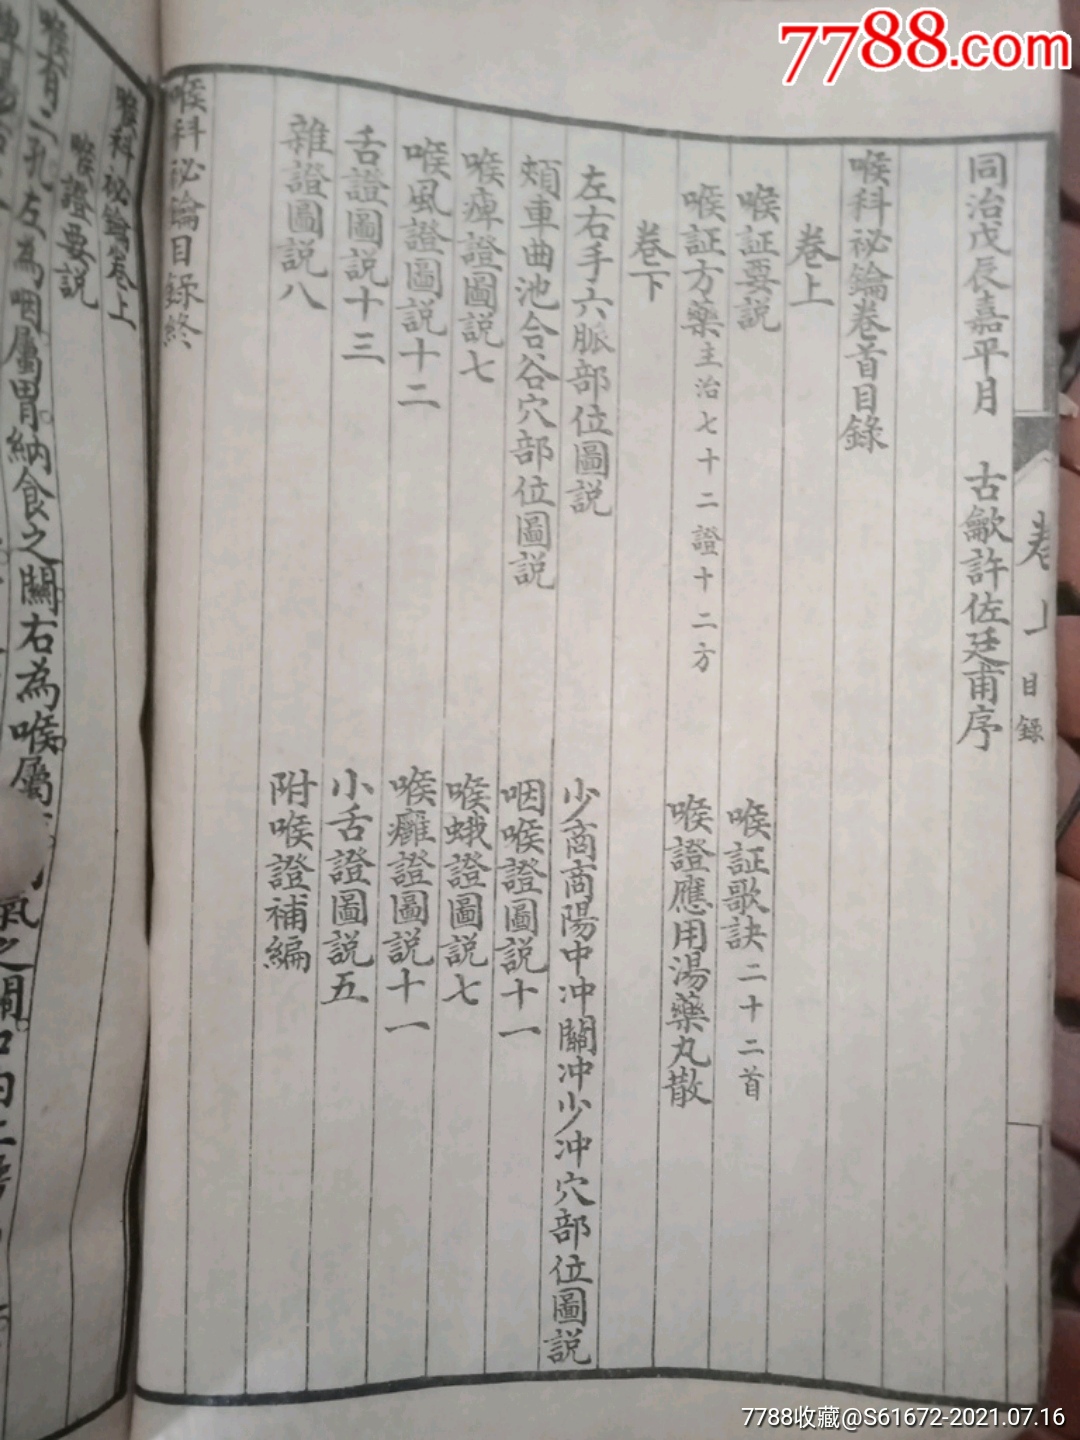 7788.com
卷上 目錄
同治戊辰嘉平月 古歙許佐廷甫序
喉科祕鑰卷首目錄
卷上
喉証要説 喉証歌訣二十二首
喉証方藥主治七十二證十二方 喉證應用湯藥丸散
卷下
左右手六脈部位圖説 少商商陽中冲關冲少冲穴部位圖説
頰車曲池合谷穴部位圖説 咽喉證圖説十一
喉痺證圖説七 喉蛾證圖説七
喉風證圖説十二 喉癰證圖説十一
舌證圖説十三 小舌證圖説五
雜證圖説八 附喉證補編
喉科祕鑰目錄終
喉科祕鑰卷上
喉證要説
喉有二孔左為咽屬胃納食之關右為喉屬 氣之關口内上
7788收藏@S61672-2021.07.16